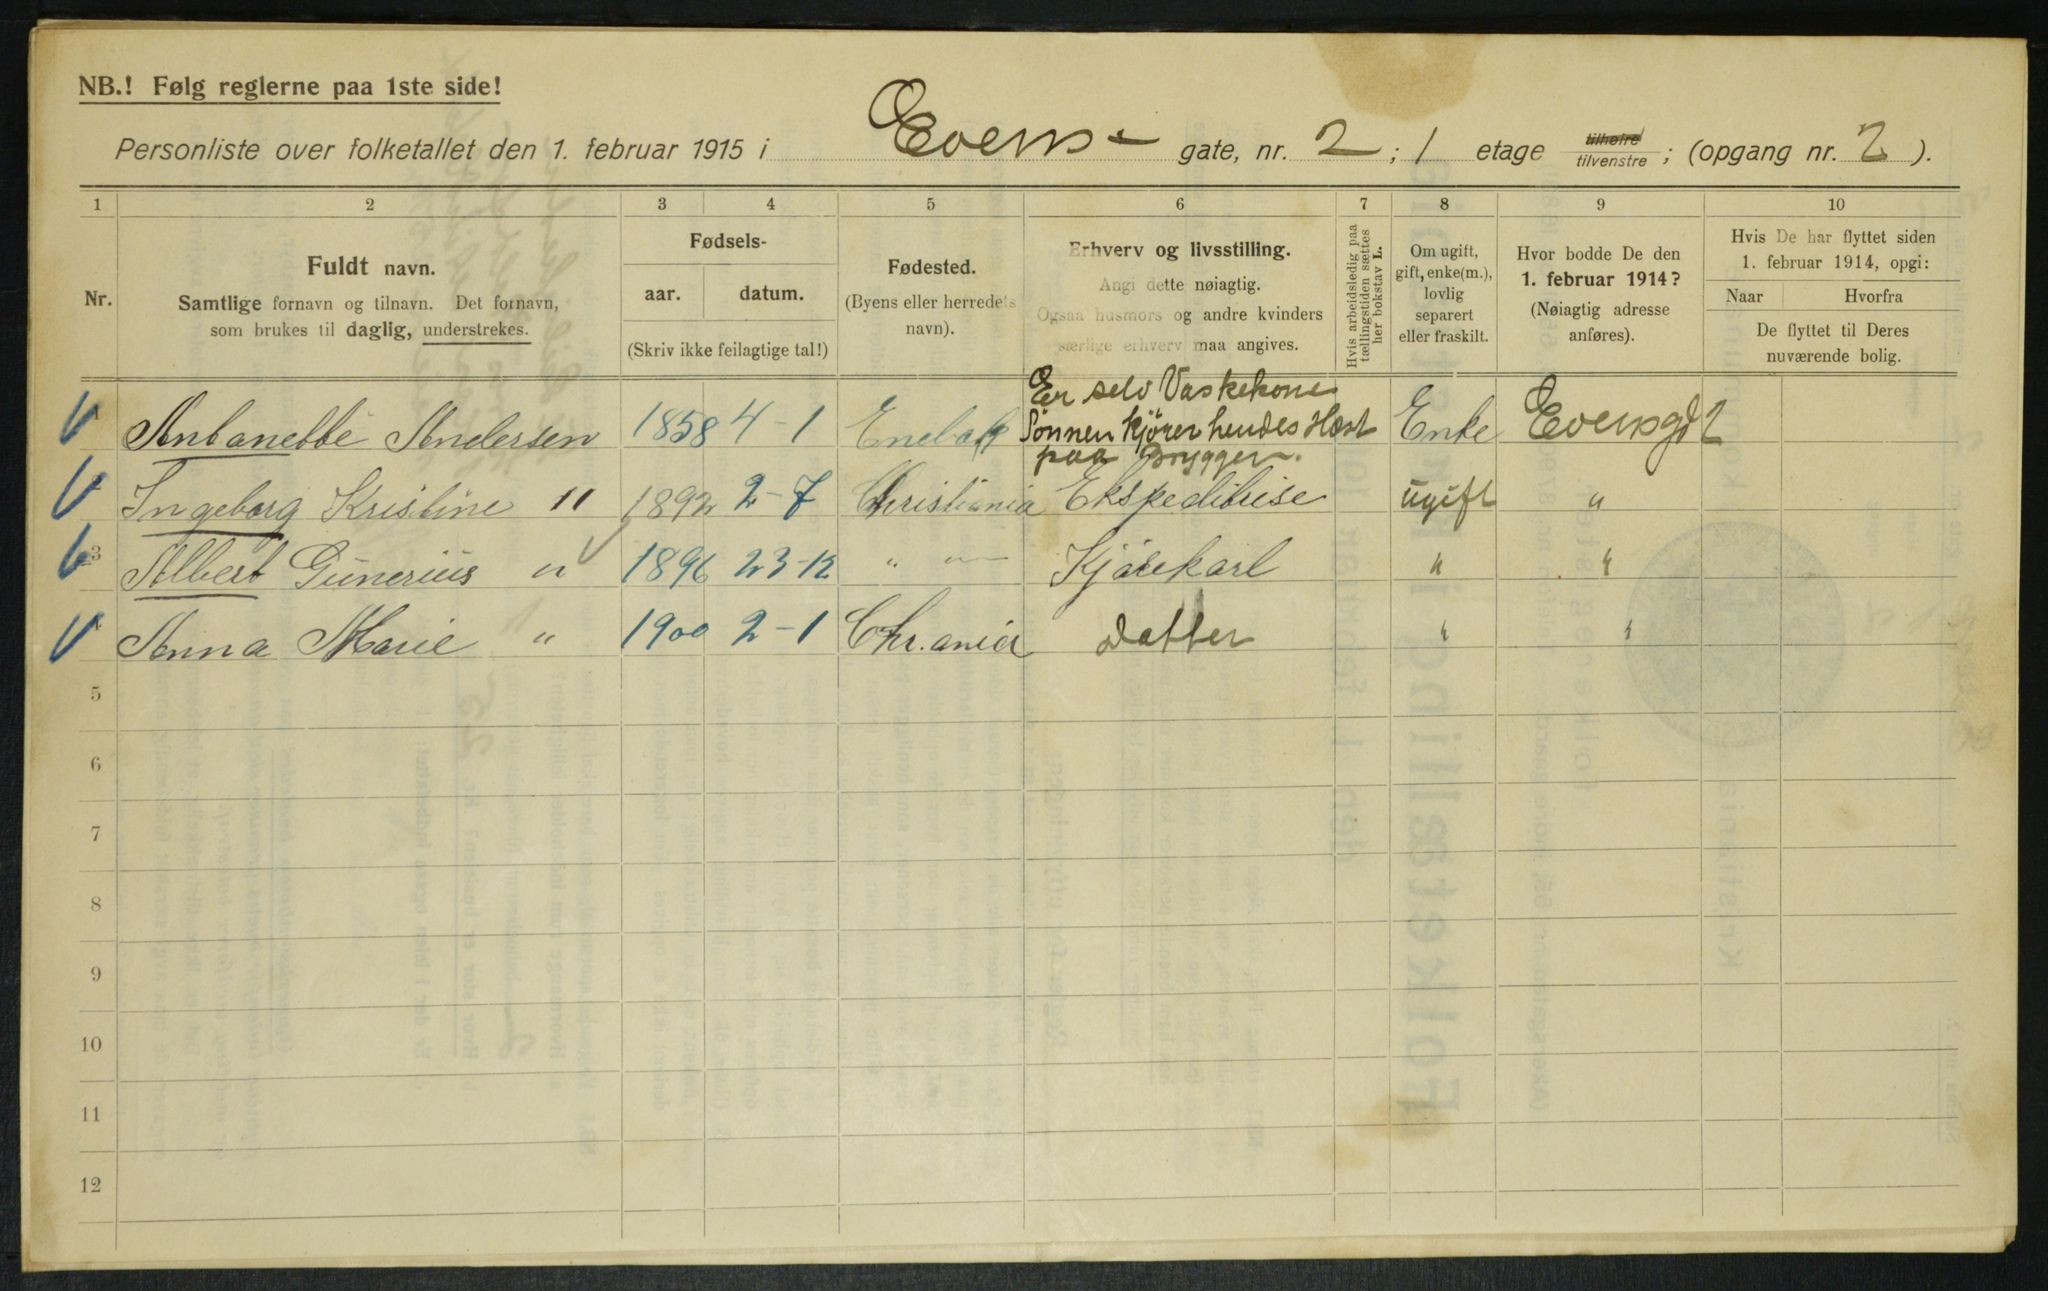 NB.! Følg reglerne paa 1ste side!
Personliste over folketallet den 1. februar 1915 i Evens gate, nr. 2 ; 1 etage tilhøire tilvenstre ; (opgang nr. 2 ).
1 2 3 4 5 6 7 8 9 10
Nr.
Fuldt navn.
Samtlige fornavn og tilnavn. Det fornavn,
som brukes til daglig, understrekes.
Fødsels-
aar. datum.
(Skriv ikke feilagtige tal!)
Fødested.
(Byens eller herredets
navn).
Erhverv og livsstilling.
Angi dette nøiagtig.
Ogsaa husmors og andre kvinders
særlige erhverv maa angives.
Hvis arbeidsledig paa
tællingstiden sættes
her bokstav L.
Om ugift,
gift, enke(m.),
lovlig
separert
eller fraskilt.
Hvor bodde De den
1. februar 1914?
(Nøiagtig adresse
anføres).
Hvis De har flyttet siden
1. februar 1914, opgi:
Naar Hvorfra
De flyttet til Deres
nuværende bolig.
1 Antanette Andersen 1858 4-1 Enebak Er selv Vaskekone
Sønnen kjører hendes Hest
paa Bryggen. Enke Evensgd 2
2 Ingeborg Kristine " 1892 2-7 Christiania Ekspeditrise ugift "
3 Albert Gunerius " 1896 23-12 " " Kjørekarl " "
4 Anna Marie " 1900 2-1 Chr.ania Datter " "
5
6
7
8
9
10
11
12